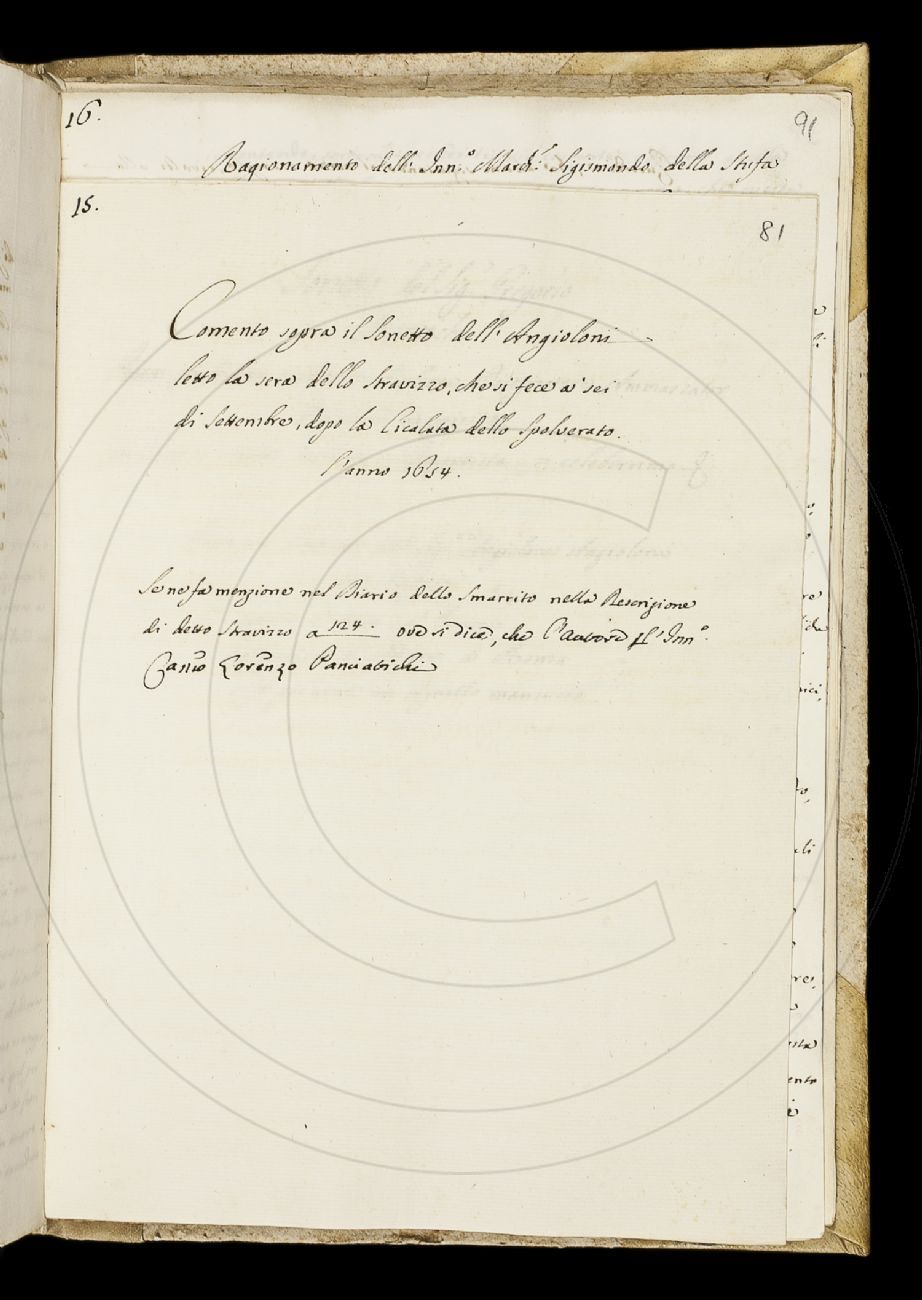 16.
91
Ragionamento dell' Inn.º March.e Sigismondo della Stufa
15.
81
Comento sopra il Sonetto dell' Angioloni
letto la sera dello Stravizzo, che si fece a' sei
di Settembre, dopo la Cicalata dello Spolverato.
l'anno 1654.
Se ne fa menzione nel Diario dello Smarrito nella Descrizione
di detto Stravizzo a 124. ove si dice, che l'Autore f. l' Inn.º
Can.co Lorenzo Panciatichi